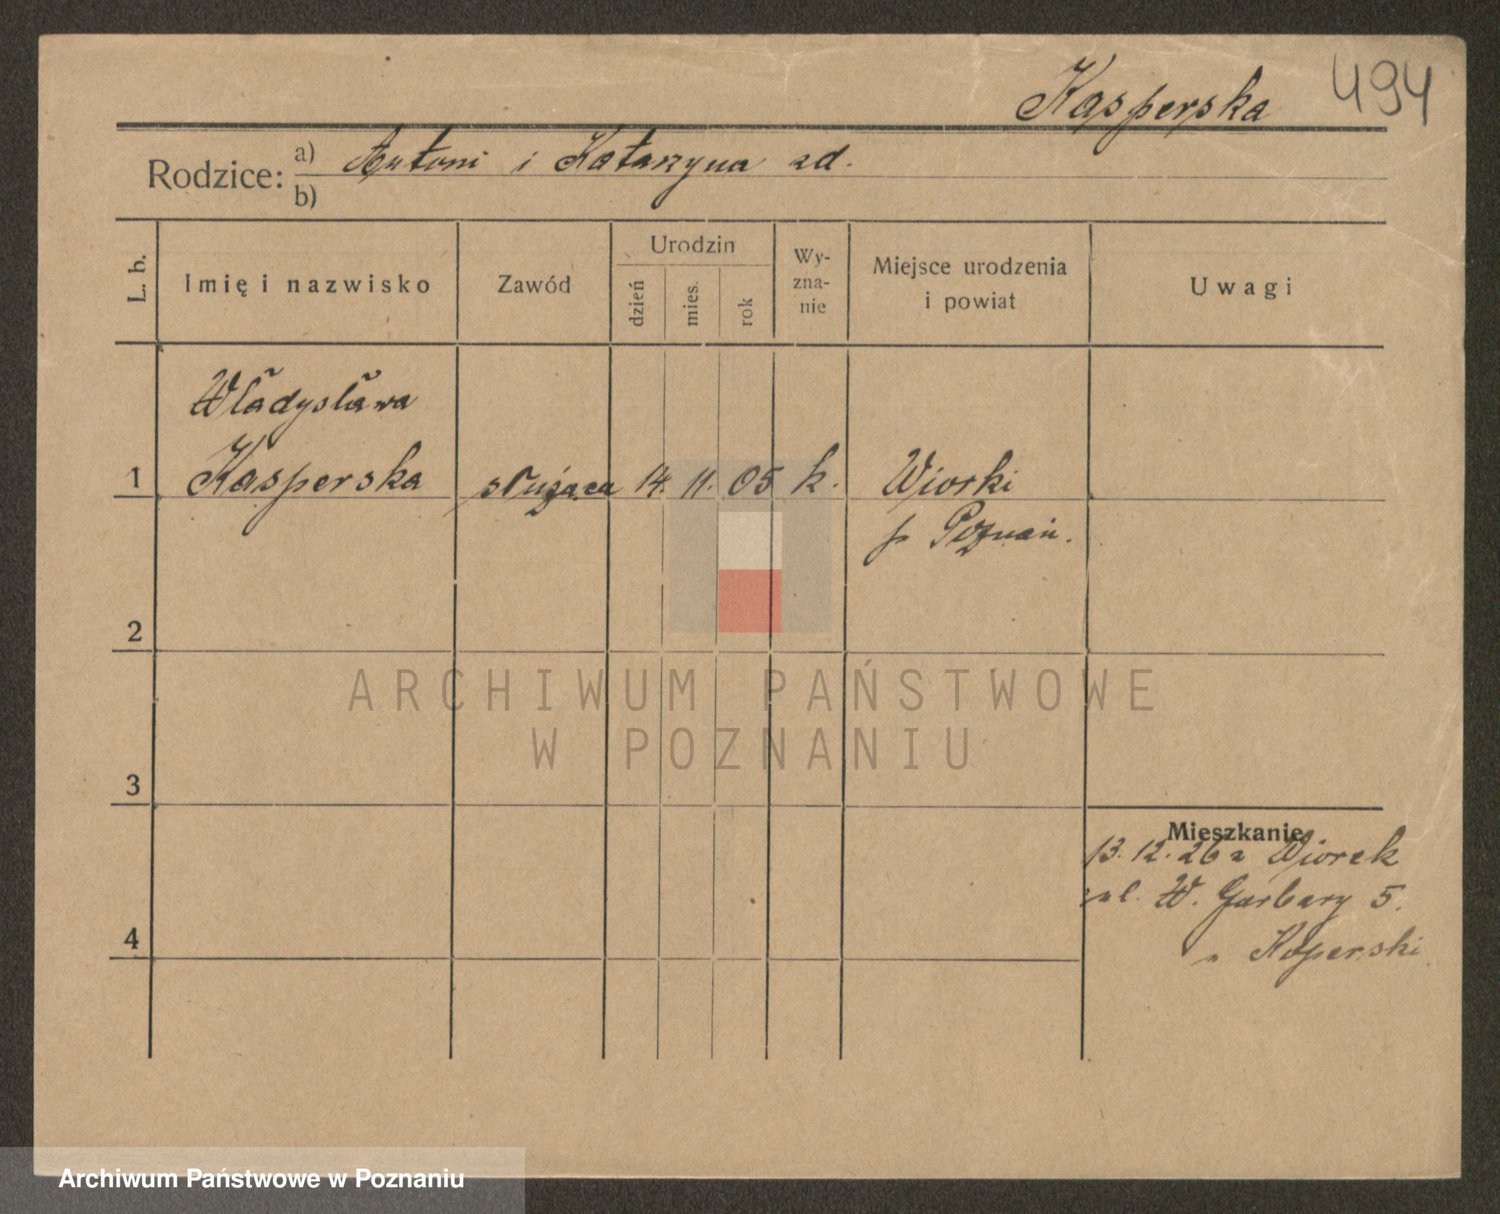 Kasperska 494
Rodzice: a) Antoni i Katarzyna zd.
b)
L. b.
Imię i nazwisko
Zawód
Urodzin
dzień
mies.
rok
Wy-
zna-
nie
Miejsce urodzenia
i powiat
Uwagi
Władysława
1 Kasperska służąca 14. 11. 05 k. Wiorki
p Poznań.
2
ARCHIWUM PAŃSTWOWE
W POZNANIU
3
Mieszkanie
13.12.26 z Wiorek
ul. W. Garbary 5.
Koperski
4
Archiwum Państwowe w Poznaniu